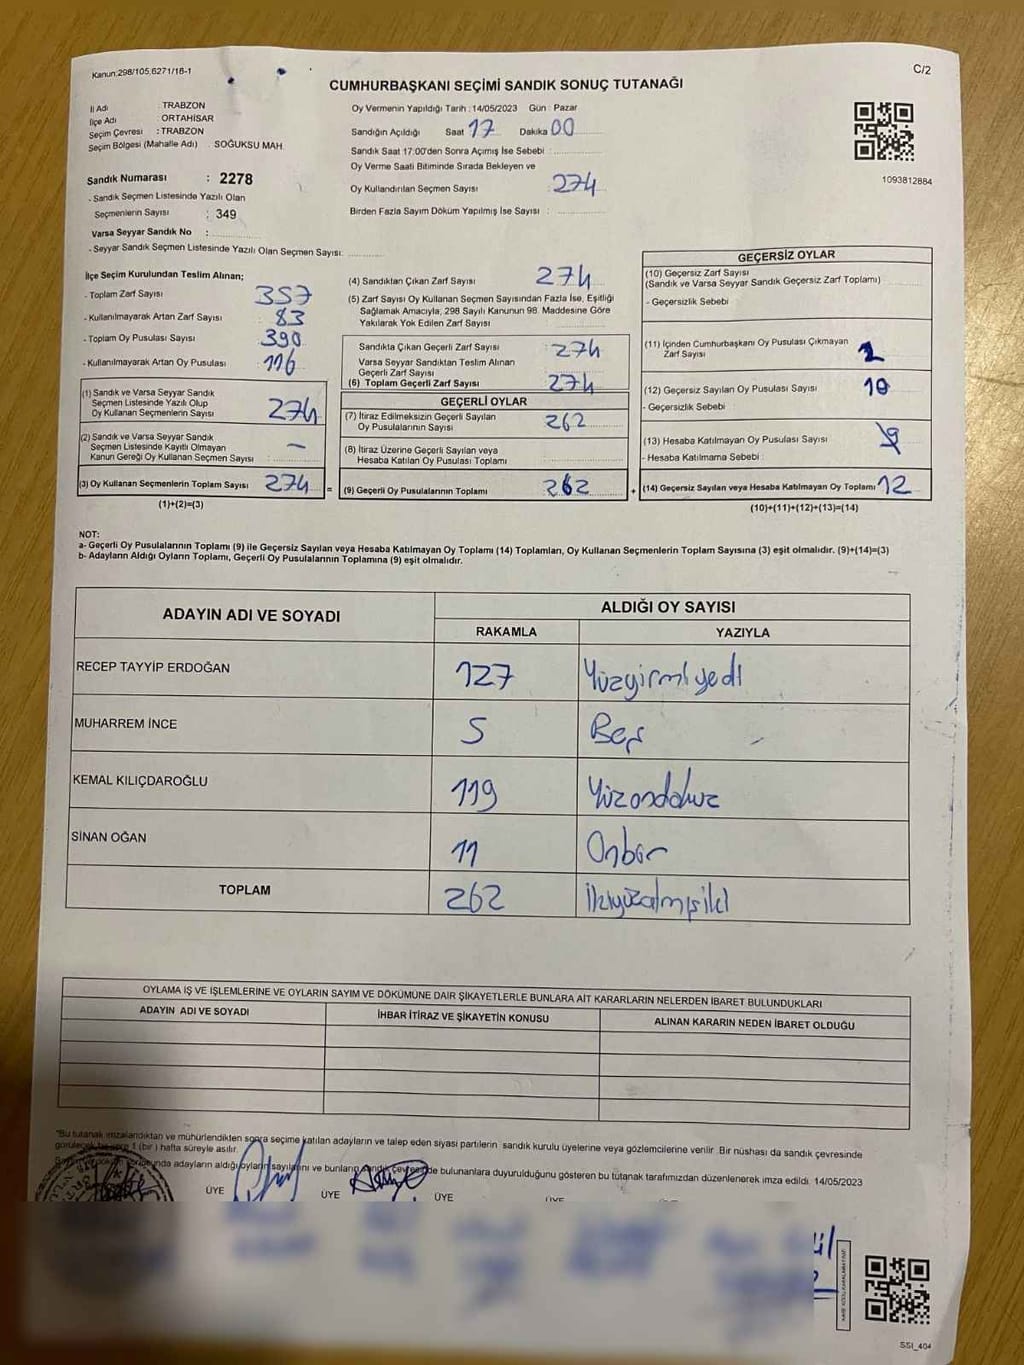 Kanun:298/105,6271/18-1
C/2
CUMHURBAŞKANI SEÇİMİ SANDIK SONUÇ TUTANAĞI
İl Adı : TRABZON
İlçe Adı : ORTAHİSAR
Seçim Çevresi : TRABZON
Seçim Bölgesi (Mahalle Adı) SOĞUKSU MAH.
Sandık Numarası : 2278
- Sandık Seçmen Listesinde Yazılı Olan
Seçmenlerin Sayısı : 349
Varsa Seyyar Sandık No :
- Seyyar Sandık Seçmen Listesinde Yazılı Olan Seçmen Sayısı:
Oy Vermenin Yapıldığı Tarih : 14/05/2023 Gün : Pazar
Sandığın Açıldığı Saat 17 Dakika 00
Sandık Saat 17:00'den Sonra Açımış İse Sebebi :
Oy Verme Saati Bitiminde Sırada Bekleyen ve
Oy Kullandırılan Seçmen Sayısı 274
Birden Fazla Sayım Döküm Yapılmış İse Sayısı :
1093812884
İlçe Seçim Kurulundan Teslim Alınan;
- Toplam Zarf Sayısı 357
- Kullanılmayarak Artan Zarf Sayısı 83
- Toplam Oy Pusulası Sayısı 390
- Kullanılmayarak Artan Oy Pusulası 116
(1) Sandık ve Varsa Seyyar Sandık
Seçmen Listesinde Yazılı Olup
Oy Kullanan Seçmenlerin Sayısı 274
(2) Sandık ve Varsa Seyyar Sandık
Seçmen Listesinde Kayıtlı Olmayan
Kanun Gereği Oy Kullanan Seçmen Sayısı : –
(3) Oy Kullanan Seçmenlerin Toplam Sayısı 274 =
(1)+(2)=(3)
(4) Sandıktan Çıkan Zarf Sayısı 274
(5) Zarf Sayısı Oy Kullanan Seçmen Sayısından Fazla İse, Eşitliği
Sağlamak Amacıyla, 298 Sayılı Kanunun 98. Maddesine Göre
Yakılarak Yok Edilen Zarf Sayısı
Sandıkta Çıkan Geçerli Zarf Sayısı 274
Varsa Seyyar Sandıktan Teslim Alınan
Geçerli Zarf Sayısı
(6) Toplam Geçerli Zarf Sayısı 274
GEÇERLİ OYLAR
(7) İtiraz Edilmeksizin Geçerli Sayılan
Oy Pusulalarının Sayısı 262
(8) İtiraz Üzerine Geçerli Sayılan veya
Hesaba Katılan Oy Pusulası Toplamı
(9) Geçerli Oy Pusulalarının Toplamı 262 +
GEÇERSİZ OYLAR
(10) Geçersiz Zarf Sayısı
(Sandık ve Varsa Seyyar Sandık Geçersiz Zarf Toplamı)
- Geçersizlik Sebebi
(11) İçinden Cumhurbaşkanı Oy Pusulası Çıkmayan
Zarf Sayısı
(12) Geçersiz Sayılan Oy Pusulası Sayısı 10
- Geçersizlik Sebebi :
(13) Hesaba Katılmayan Oy Pusulası Sayısı
- Hesaba Katılmama Sebebi :
(14) Geçersiz Sayılan veya Hesaba Katılmayan Oy Toplamı 12
(10)+(11)+(12)+(13)=(14)
NOT:
a- Geçerli Oy Pusulalarının Toplamı (9) ile Geçersiz Sayılan veya Hesaba Katılmayan Oy Toplamı (14) Toplamları, Oy Kullanan Seçmenlerin Toplam Sayısına (3) eşit olmalıdır. (9)+(14)=(3)
b- Adayların Aldığı Oyların Toplamı, Geçerli Oy Pusulalarının Toplamına (9) eşit olmalıdır.
ADAYIN ADI VE SOYADI ALDIĞI OY SAYISI
RAKAMLA YAZIYLA
RECEP TAYYİP ERDOĞAN 127 Yüzyirmiyedi
MUHARREM İNCE 5 Beş
KEMAL KILIÇDAROĞLU 119 Yüzondokuz
SİNAN OĞAN 11 Onbir
TOPLAM 262 İkiyüzatmışiki
OYLAMA İŞ VE İŞLEMLERİNE VE OYLARIN SAYIM VE DÖKÜMÜNE DAİR ŞİKAYETLERLE BUNLARA AİT KARARLARIN NELERDEN İBARET BULUNDUKLARI
ADAYIN ADI VE SOYADI İHBAR İTİRAZ VE ŞİKAYETİN KONUSU ALINAN KARARIN NEDEN İBARET OLDUĞU
"Bu tutanak imzalandıktan ve mühürlendikten sonra seçime katılan adayların ve talep eden siyasi partilerin sandık kurulu üyelerine veya gözlemcilerine verilir. Bir nüshası da sandık çevresinde
görülecek bir yere 1 (bir) hafta süreyle asılır.
adayların aldığı oyların sayılarını ve bunların sandık çevresinde bulunanlara duyurulduğunu gösteren bu tutanak tarafımızdan düzenlenerek imza edildi. 14/05/2023
ÜYE ÜYE ÜYE ÜYE
SSI_404